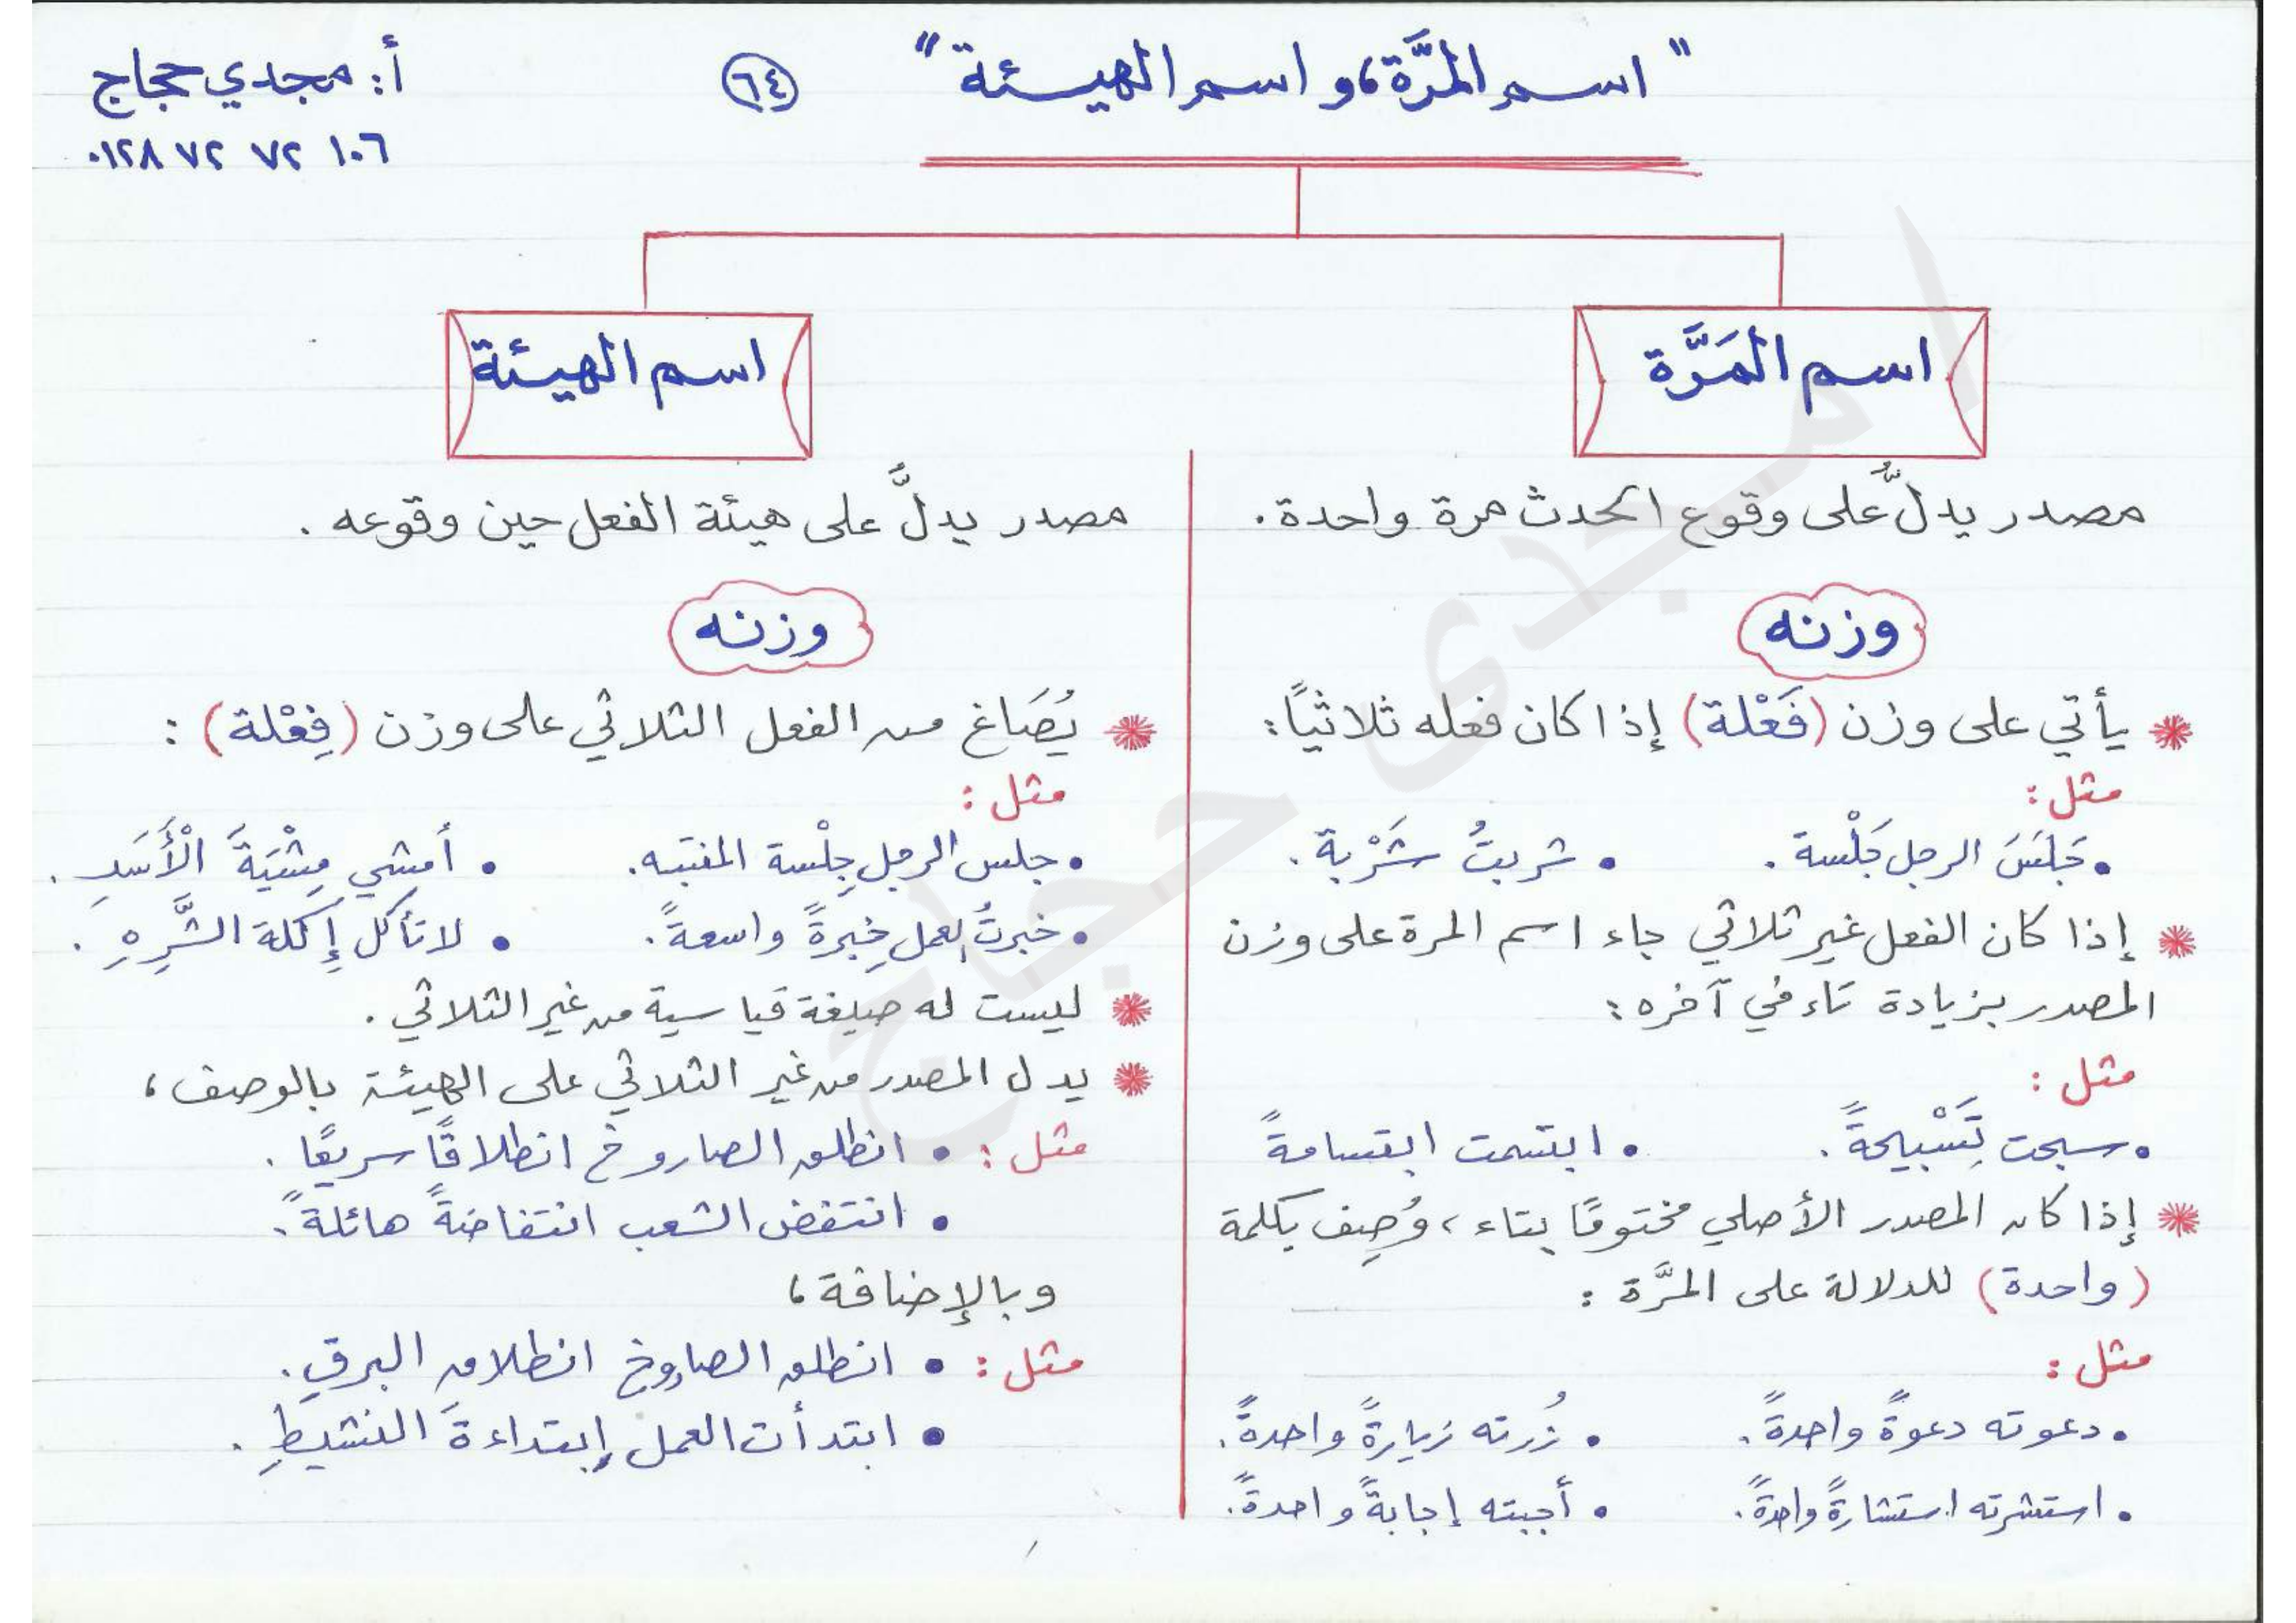 " اسم المرَّة، و اسم الهيئة "
٦٤
أ: مجدي حجاج
٠١٢٨ ٧٢ ٧٢ ١٠٦
اسم المَرَّة
مصدر يدلُّ على وقوع الحدث مرة واحدة.
وزنه
يأتي على وزن (فَعْلة) إذا كان فعله ثلاثياً:
مثل:
• جَلَسَ الرجل جَلْسة. • شربتُ شَرْبة.
إذا كان الفعل غير ثلاثي جاء اسم المرة على وزن
المصدر بزيادة تاء في آخره:
مثل:
• سبحت تَسْبيحةً. • ابتسمت ابتسامةً
إذا كان المصدر الأصلي مختومًا بتاء، وُصِف بكلمة
(واحدة) للدلالة على المرَّة:
مثل:
• دعوته دعوةً واحدةً. • زُرته زيارةً واحدةً.
• استشرته استشارةً واحدةً. • أجبته إجابةً واحدةً.
اسم الهيئة
مصدر يدلُّ على هيئة الفعل حين وقوعه.
وزنه
يُصَاغ من الفعل الثلاثي على وزن (فِعْلة):
مثل:
• جلس الرجل جِلْسة المنتبه. • أمشي مِشْيَةَ الْأَسَدِ.
• خبرتُ العمل خِبرةً واسعةً. • لا تأكل إِكلة الشَّرِهِ.
ليست له صيغة قياسية من غير الثلاثي.
يدل المصدر من غير الثلاثي على الهيئة بالوصف،
مثل: • انطلق الصاروخ انطلاقًا سريعًا.
• انتفض الشعب انتفاضةً هائلةً.
وبالإضافة،
مثل: • انطلق الصاروخ انطلاق البرقِ.
• ابتدأت العمل إبتداءةَ النشيطِ.
ا مجدى حجاج